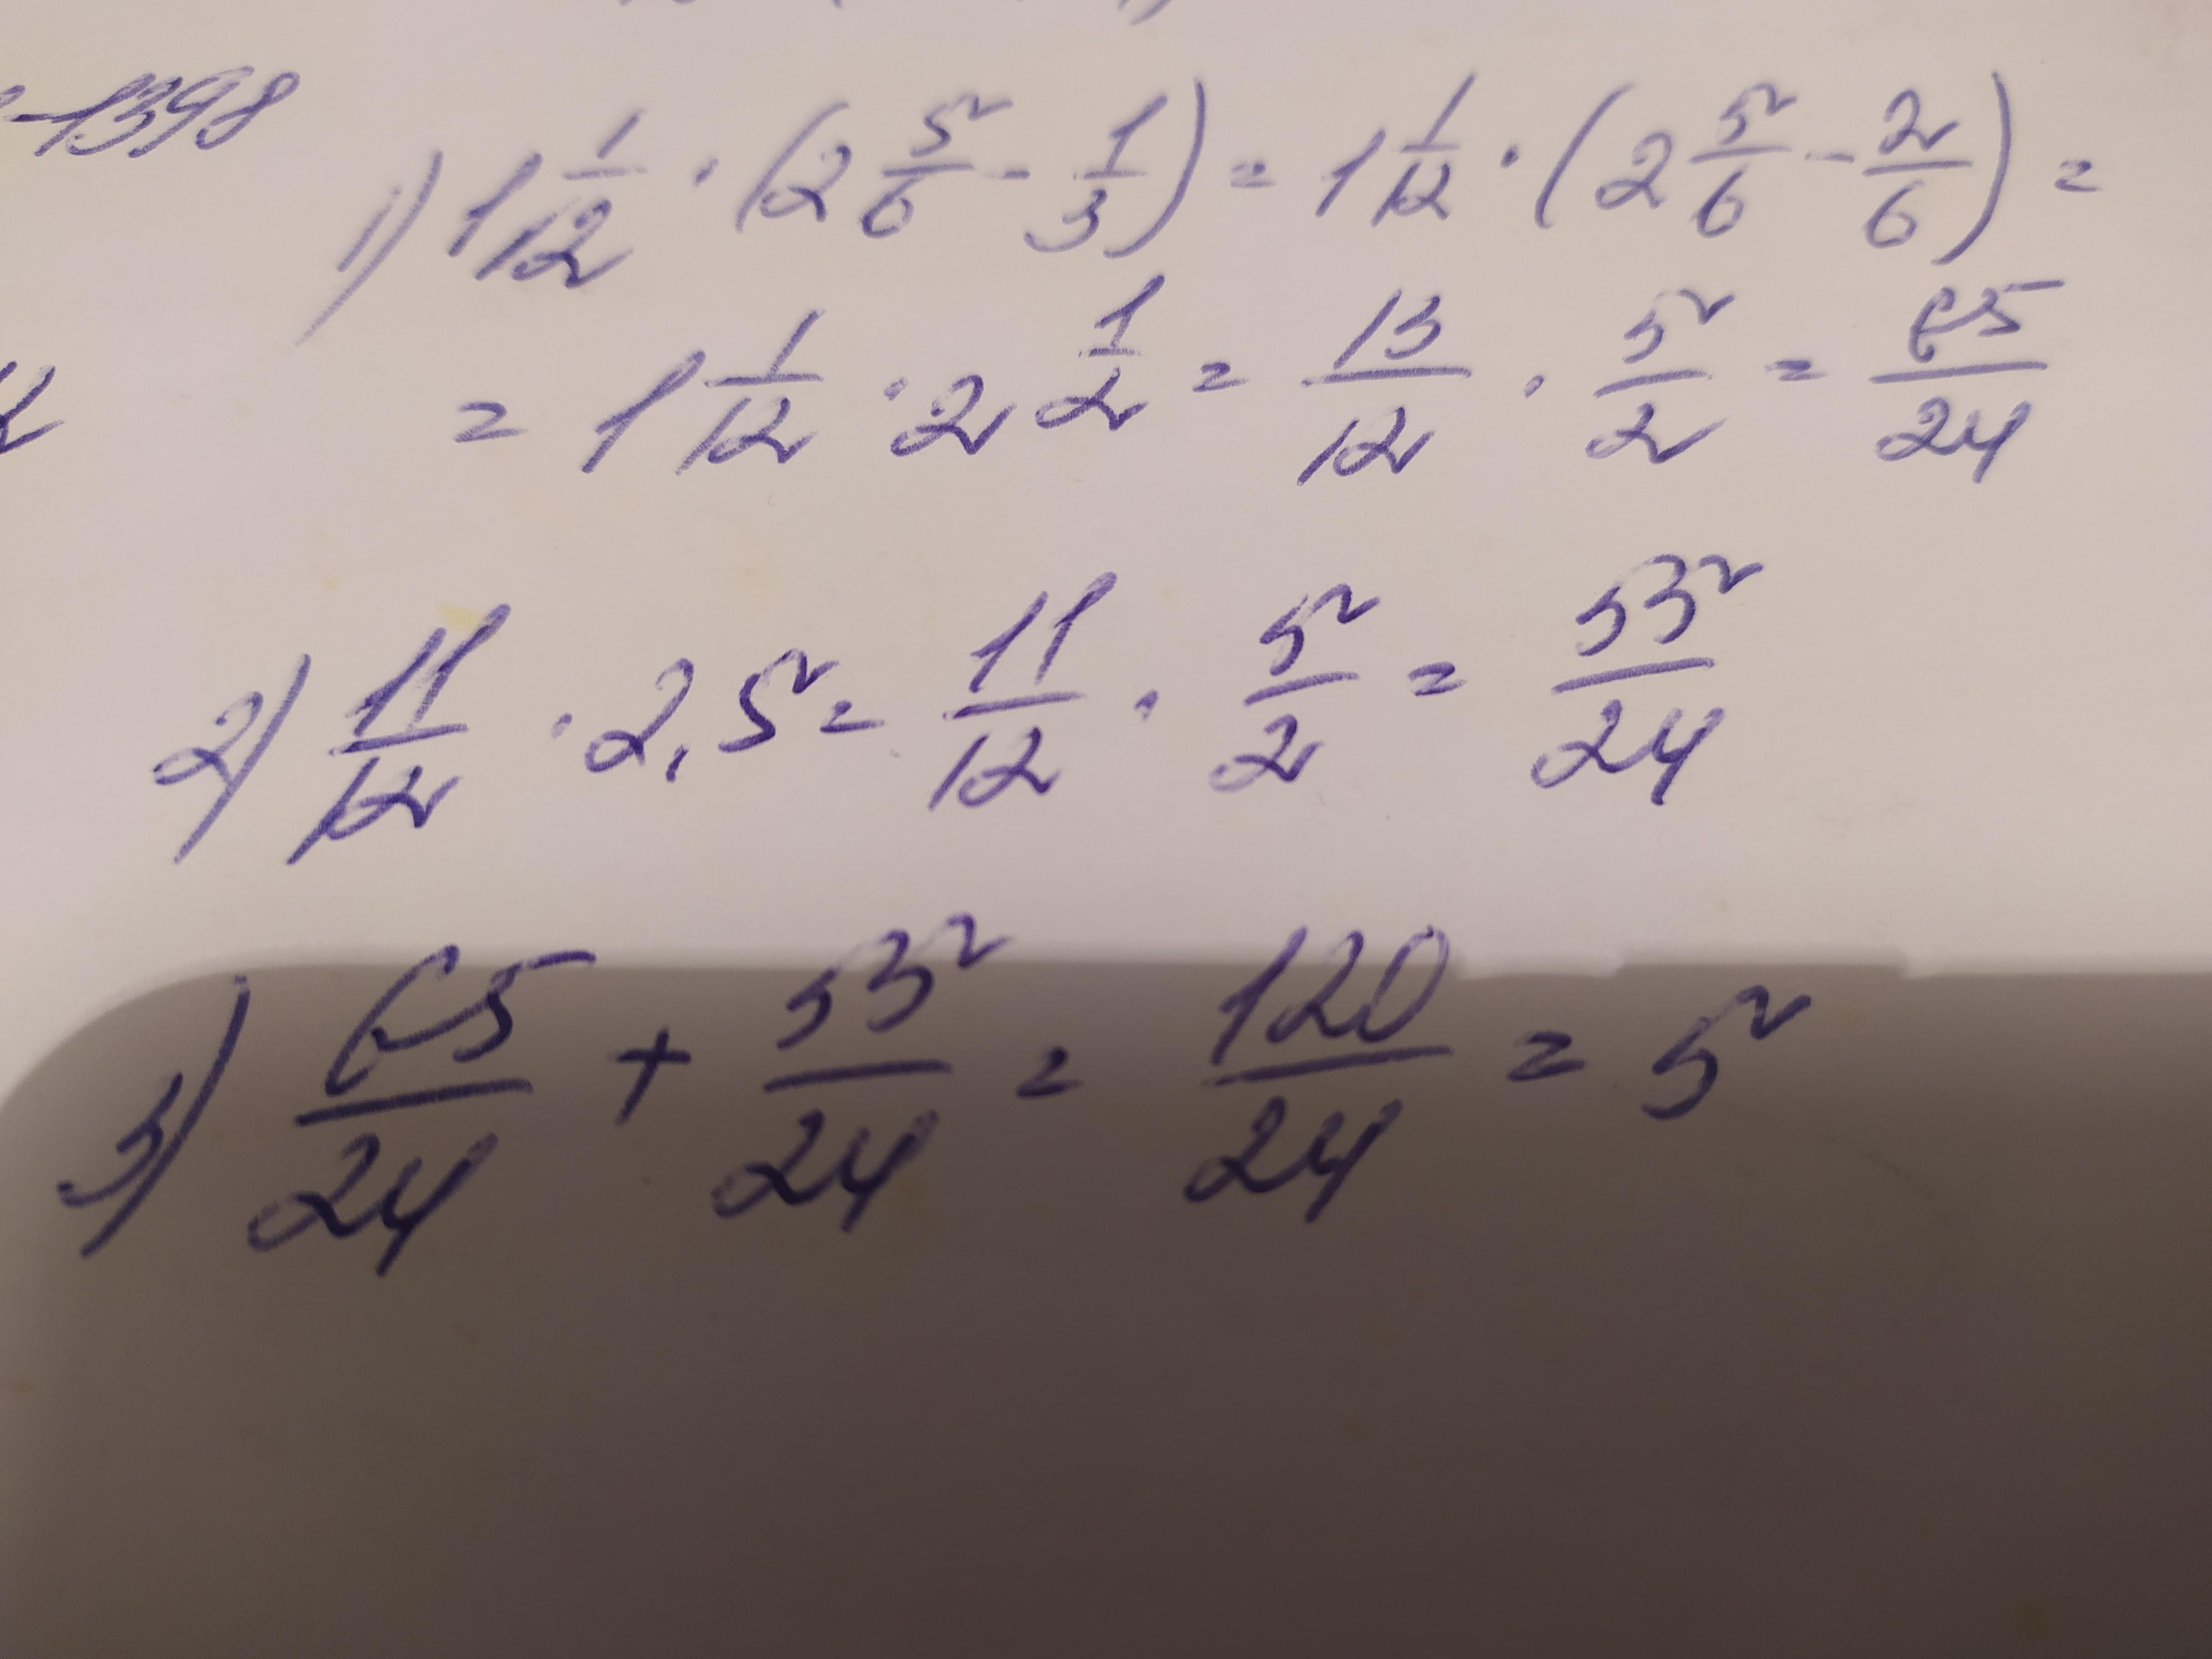 1398
1) 1 1/12 · (2 5/6 - 1/3) = 1 1/12 · (2 5/6 - 2/6) =
= 1 1/12 · 2 1/2 = 13/12 · 5/2 = 65/24
2) 11/12 · 2,5 = 11/12 · 5/2 = 55/24
3) 65/24 + 55/24 = 120/24 = 5